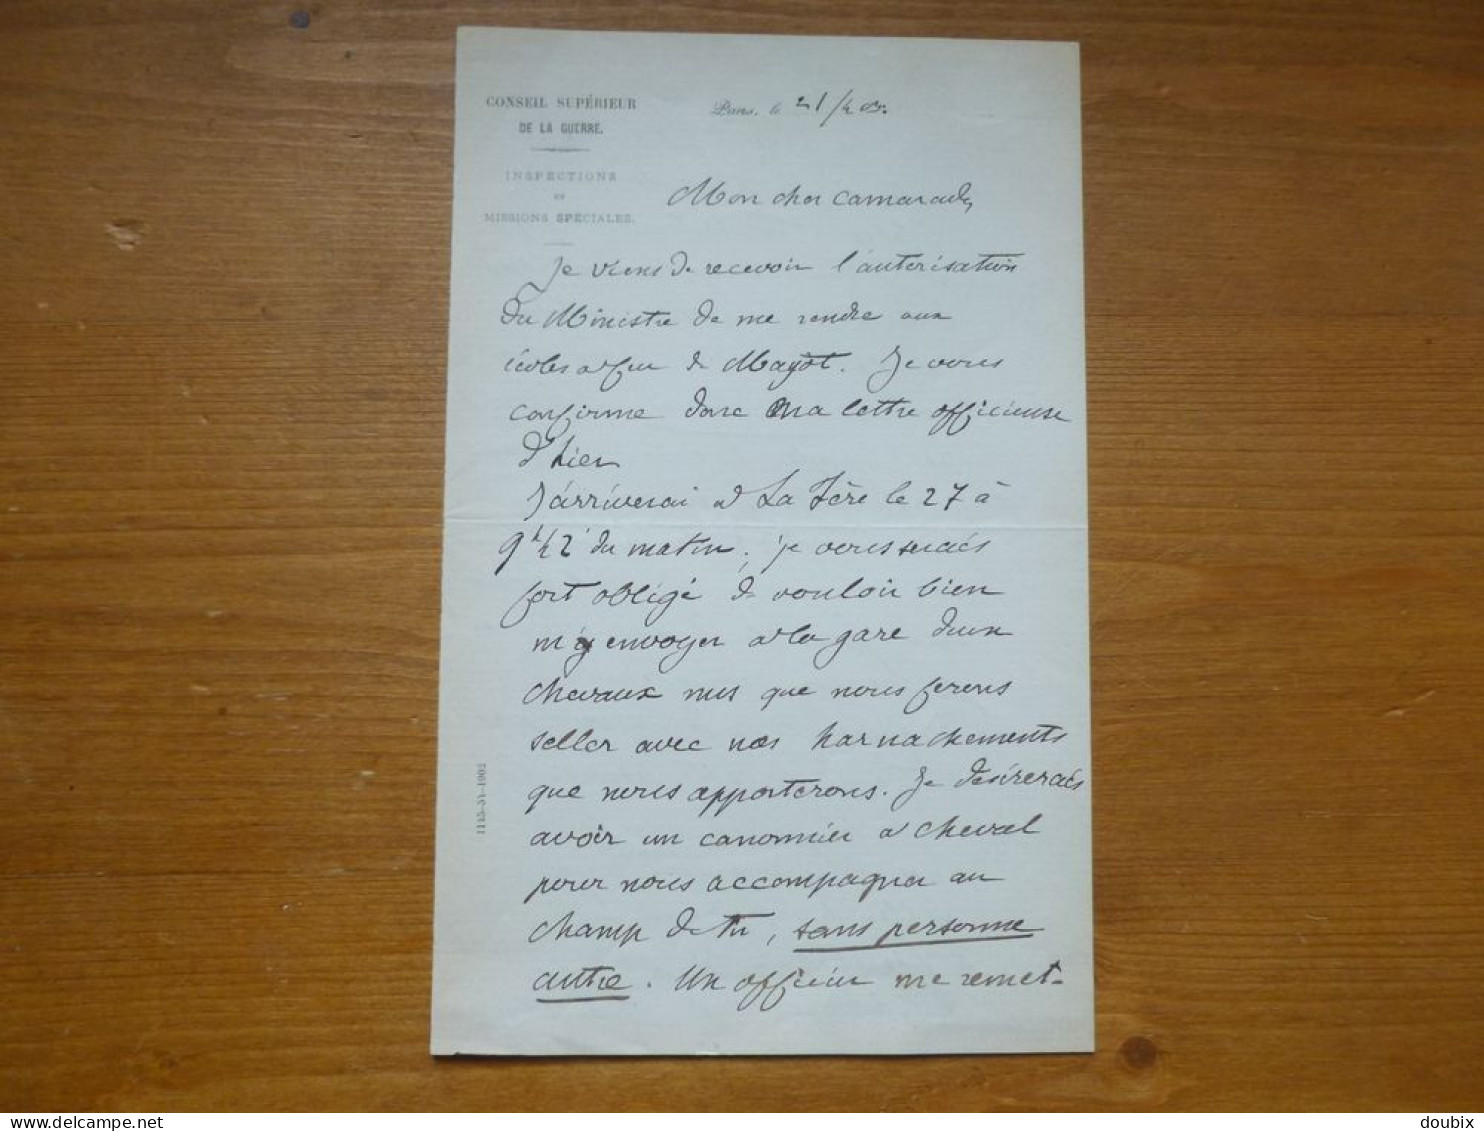 CONSEIL SUPÉRIEUR
DE LA GUERRE.
INSPECTIONS
ET
MISSIONS SPÉCIALES.
Paris, le 21/4 03.
Mon cher camarade,
Je viens de recevoir l'autorisation
du Ministre de me rendre aux
écoles à feu de Mayot. Je vous
confirme donc ma lettre officieuse
d'hier
J'arriverai à La Fère le 27 à
9h42 du matin, je vous serais
fort obligé de vouloir bien
m'y envoyer à la gare deux
chevaux nus que nous ferons
seller avec nos harnachements
que nous apporterons. Je désirerais
avoir un canonnier à cheval
pour nous accompagner au
champ de tir, sans personne
autre. Un officier me remet-
1145-51-1902
delcampe.net
doubix